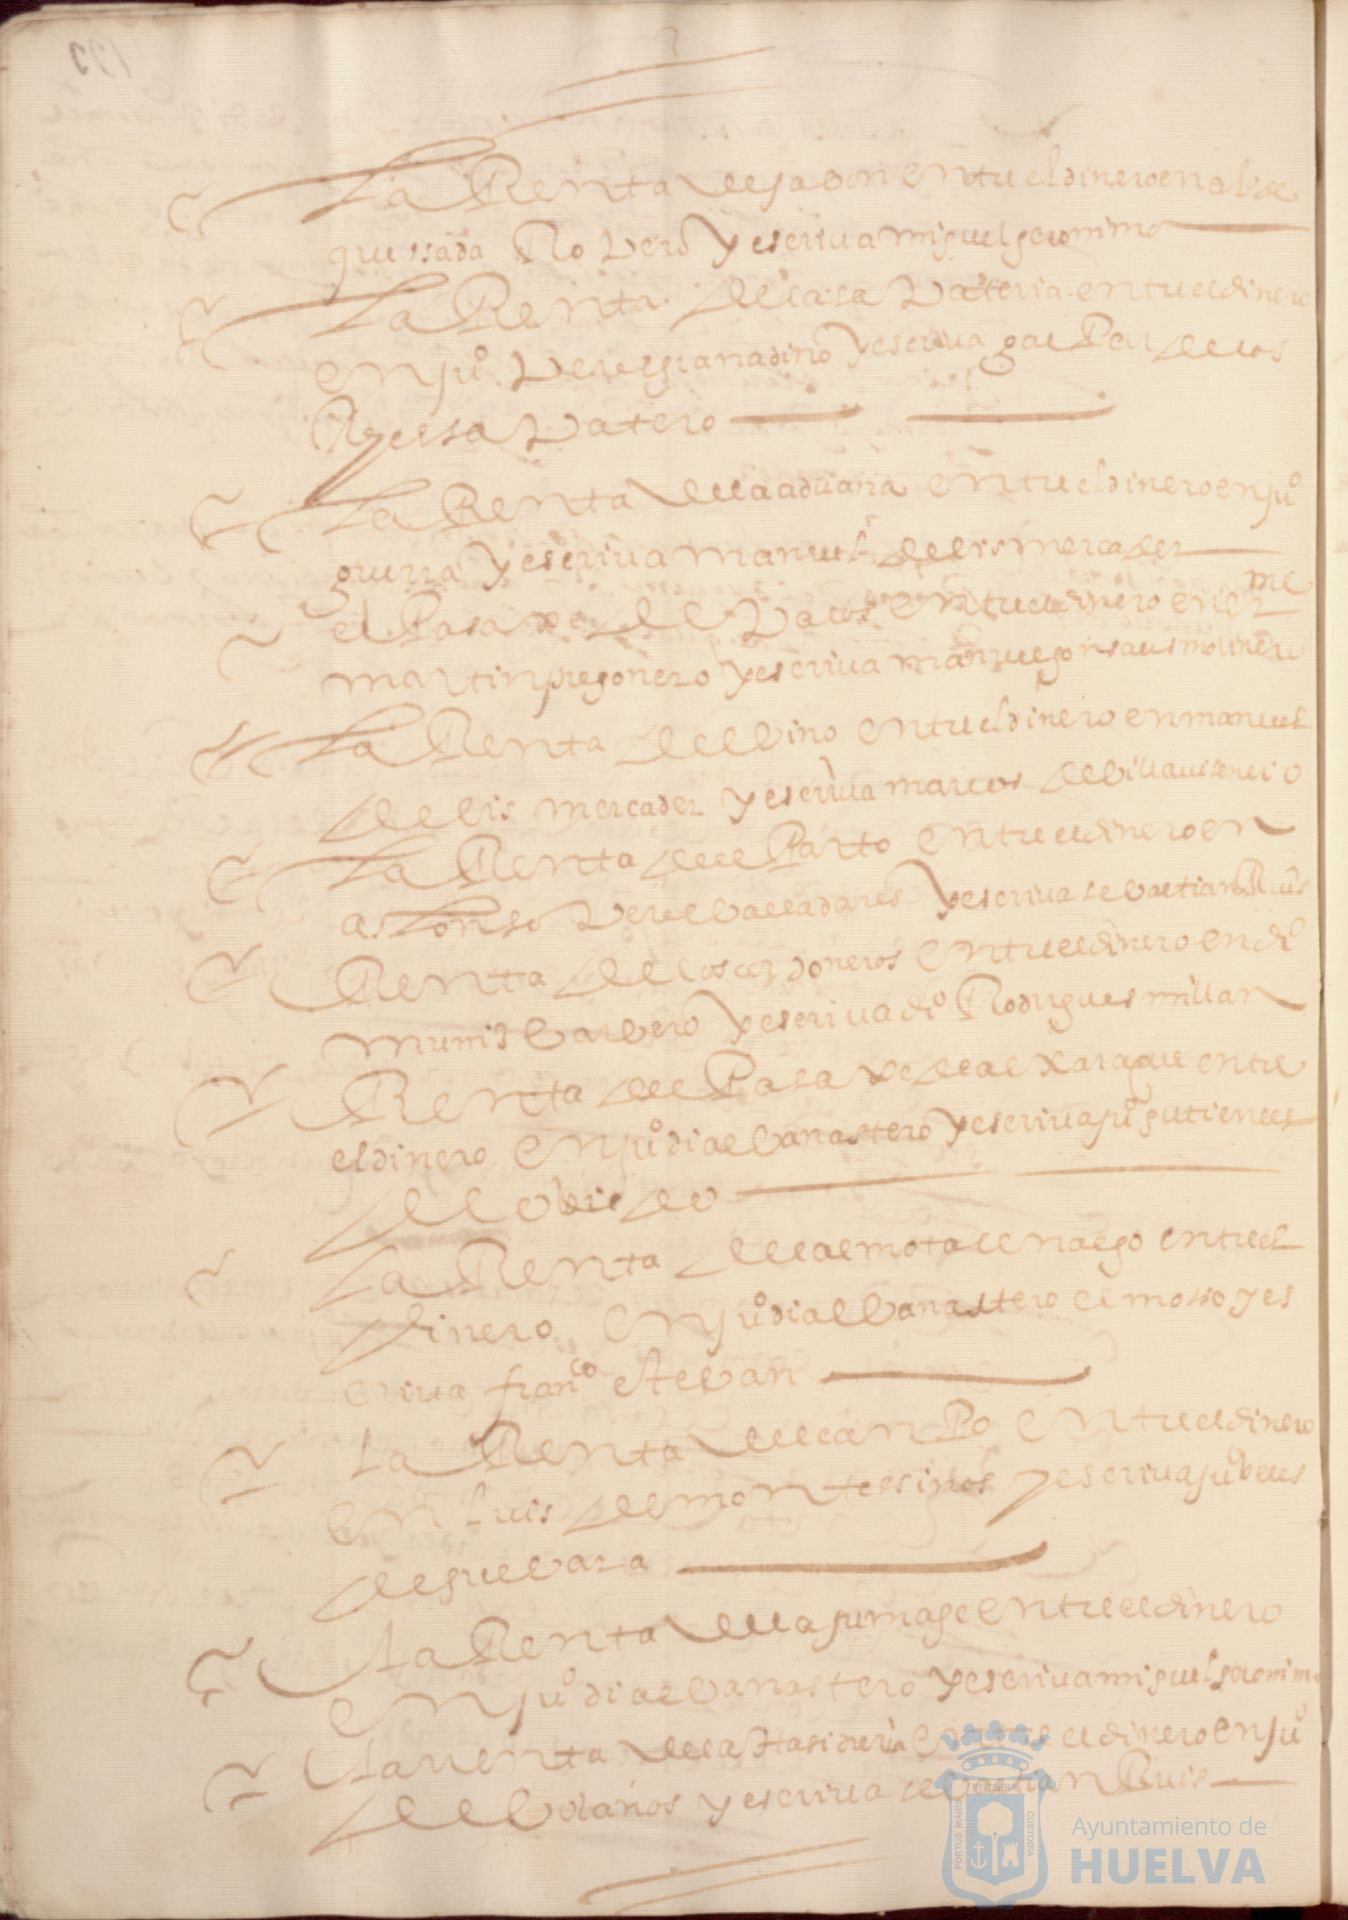 La Renta de jabon entre el dinero en al de
quessada Ro Vero y escriva miguel geronimo
La Renta de casa Vateria entre el dinero
en juº Veres granadino y escriva gas Par de los
Reyes sa Vatero
La Renta de la aduana entre el dinero en juº
guerra y escriva manuel de lis mercader
el Pasaxe de Vacos entre el dinero en
martin pregonero y escriva manuel gonsales molinero
La Renta del bino entre el dinero en manuel
de lis mercader y escriva marcos de billavisensio
La Renta del Parto entre el dinero en
alonso Veres balladares y escriva sebastian Ruis
Renta de los cordoneros entre el dinero en diº
munis barbero y escriva diº Rodrigues millan
Renta del Pasaxe de al xaraque entre
el dinero en juº dias banastero y escriva juº gutierres
de obiedo
La Renta de la almotalenasgo entre el
dinero en juº dias banastero el mosso y es
criva franco estevan
La Renta del canPo entre el dinero
en luis de montessinos y escriva juº beles
de guebara
La Renta de la jumage entre el dinero
en juº dias banastero y escriva miguel geronimo
La renta de la Hasiduria entre el dinero en juº
de bolaños y escriva sebastian Ruis
PORTUS MARIS ET TERRAE CUSTODIA
Ayuntamiento de
HUELVA